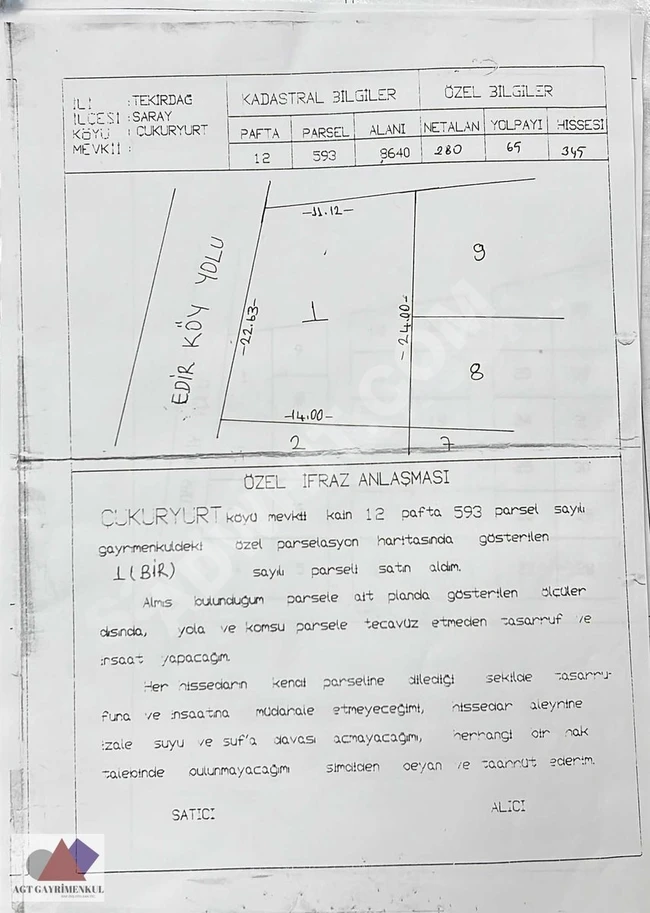 İLİ : TEKİRDAĞ
İLÇESİ : SARAY
KÖYÜ : ÇUKURYURT
MEVKİİ :
KADASTRAL BİLGİLER
ÖZEL BİLGİLER
PAFTA PARSEL ALANI NETALAN YOLPAYI HİSSESİ
12 593 8640 280 65 345
EDİR KÖY YOLU
-11.12-
-22.63-
1
-24.00-
9
8
-14.00-
2
7
ÖZEL İFRAZ ANLAŞMASI
ÇUKURYURT köyü mevkii kain 12 pafta 593 parsel sayılı
gayrmenkuldeki özel parselasyon haritasında gösterilen
1 (BİR) sayılı parseli satın aldım.
Almıs bulunduğum parsele ait planda gösterilen ölcüler
dısında, yola ve komsu parsele tecavüz etmeden tasarruf ve
insaat yapacağım.
Her hissedarın kendi parseline dilediği sekilde tasarru-
funa ve insaatına müdahale etmeyeceğimi, hissedar aleyhine
izale suyu ve suf'a davası açmayacağımı, herhangi bir hak
talebinde bulunmayacağımı simdiden beyan ve taahhüt ederim.
SATICI
ALICI
AGT GAYRİMENKUL